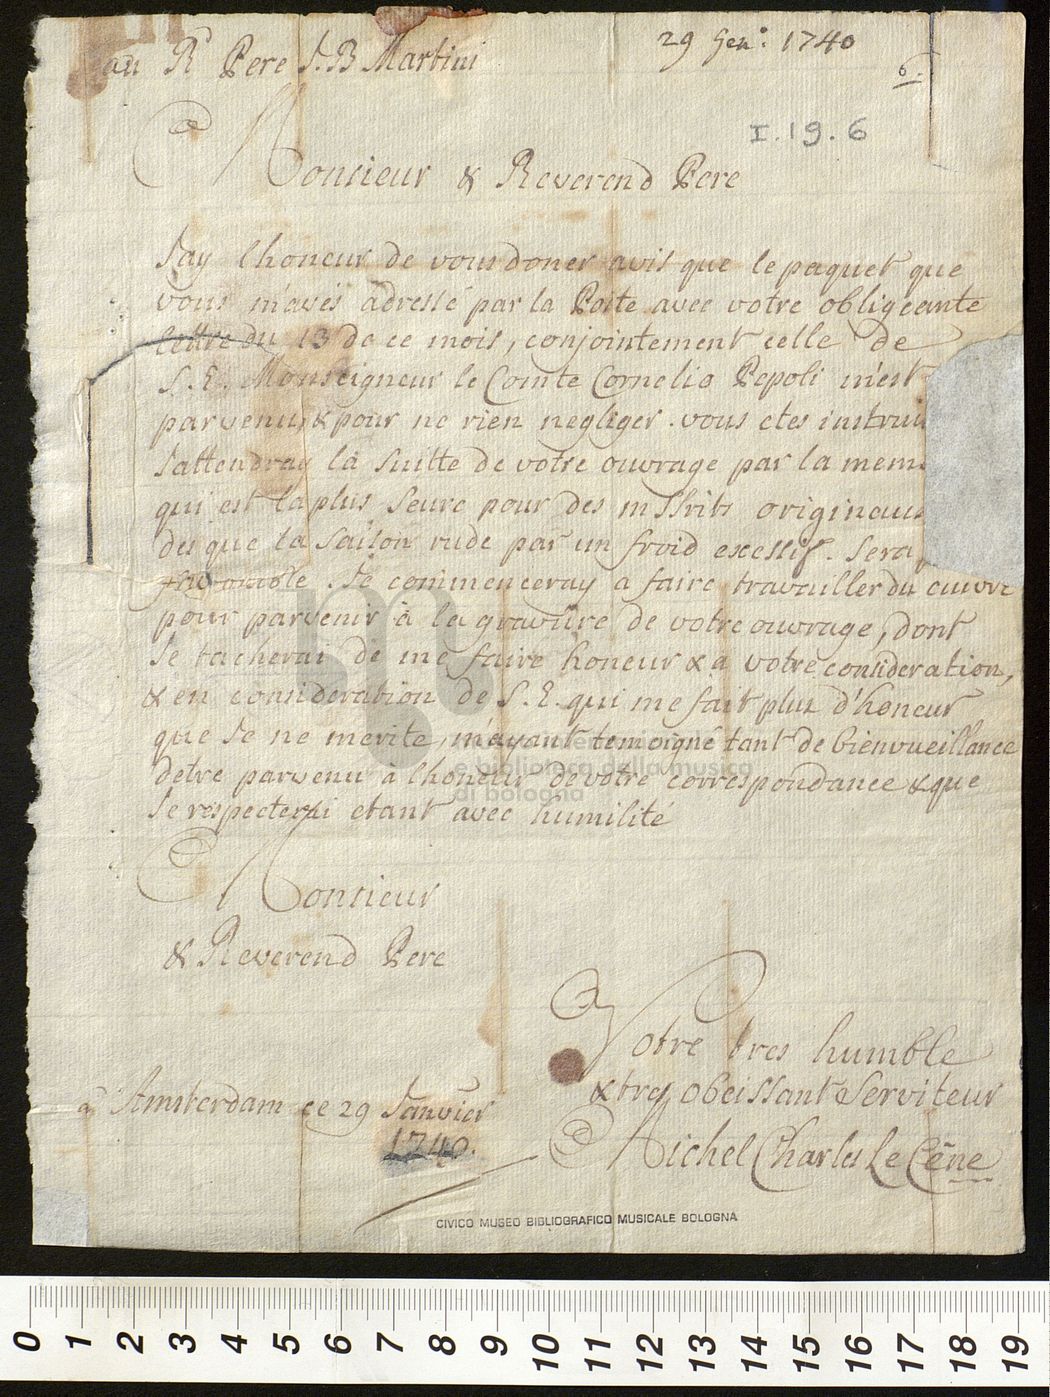 au Rd Pere J. B Martini
29 Gen.º 1740
6.
I. 19. 6
Monsieur & Reverend Pere
Jay lhoneur de vous doner avis que le paquet que
vous m'avés adressé par la Poste avec votre obligeante
lettre du 13 de ce mois, conjointement celle de
S. E. Monseigneur le Comte Cornelio Pepoli m'est
parvenu, & pour ne rien negliger. vous etes instrui
J'attendray la suitte de votre ouvrage par la mem
qui est la plus seure pour des mssrits origineau
des que la saison rude par un froid excessif. sera
favorable Je commenceray a faire travailler du cuivre
pour parvenir à la gravure de votre ouvrage, dont
Je tacherai de me faire honeur & a votre consideration,
& en consideration de S. E. qui me fait plus d'honeur
que Je ne merite, m'ayant temoigné tant de bienvueillance
detre parvenu a lhoneur de votre correspondance & que
Je respecterai etant avec humilité
Monsieur
& Reverend Pere
Votre tres humble
& tres obeissant Serviteur
Michel Charles Le Cène
a Amsterdam ce 29 Janvier
1740.
CIVICO MUSEO BIBLIOGRAFICO MUSICALE BOLOGNA
e biblioteca della musica
di bologna
0 1 2 3 4 5 6 7 8 9 10 11 12 13 14 15 16 17 18 19